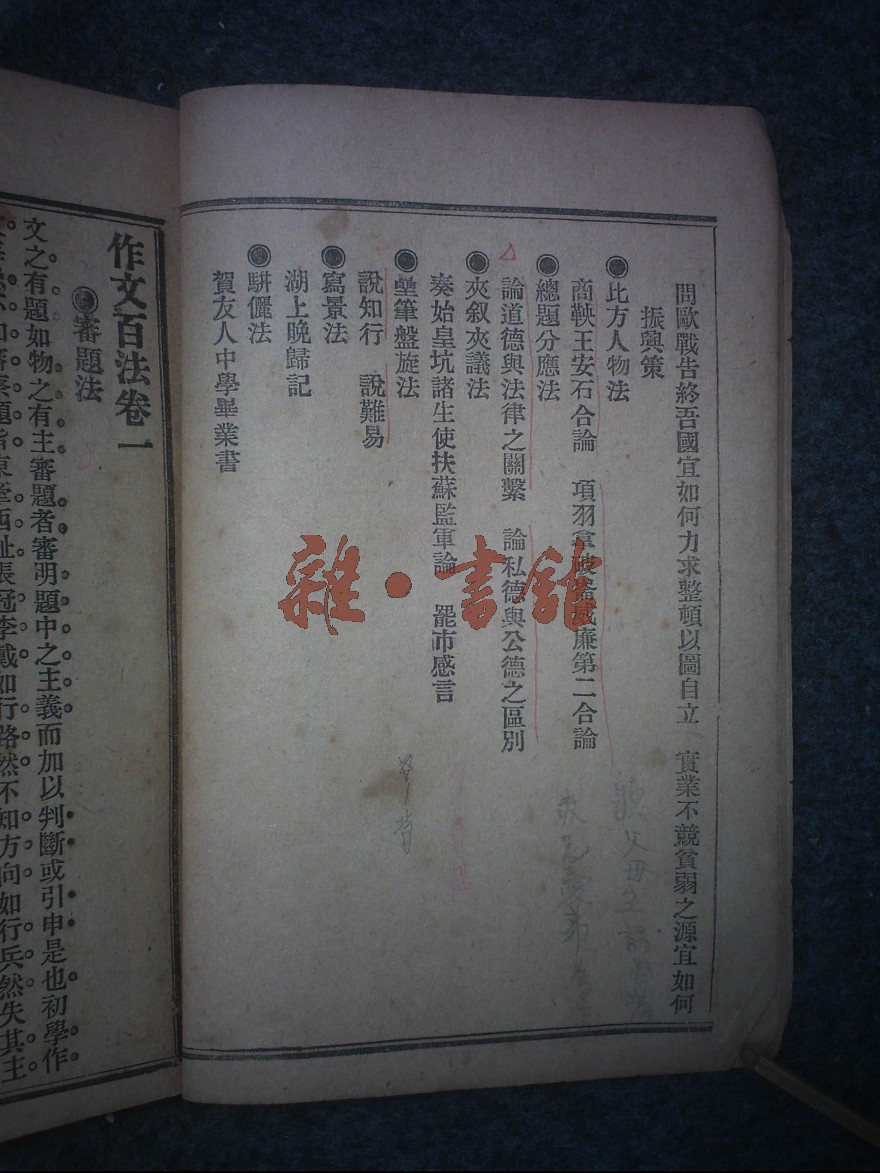 問歐戰告終吾國宜如何力求整頓以圖自立　實業不競貧弱之源宜如何
振興策
◉比方人物法
商鞅王安石合論　項羽拿破崙威廉第二合論
◉總題分應法
論道德與法律之關繫　論私德與公德之區別
◉夾叙夾議法
秦始皇坑諸生使扶蘇監軍論　罷市感言
◉壘筆盤旋法
說知行　說難易
◉寫景法
湖上晚歸記
◉駢儷法
賀友人中學畢業書
作文百法卷一
◉審題法
文之有題如物之有主審題者審明題中之主義而加以判斷或引申是也初學作
題指東塗西扯張冠李戴如行路然不知方向如行兵然失其主
雜·書館